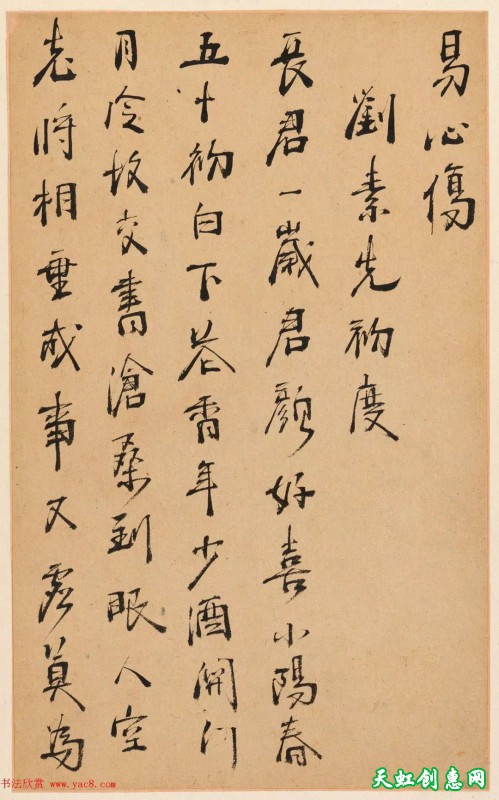 易心傷
劉素先初度
長君一歲君顏好喜小陽春
五十初白下花香年少酒門
月冷故交書滄桑到眼人空
老將相垂成事又虛莫為
书法欣赏 www.yac8.com
天虹创惠网